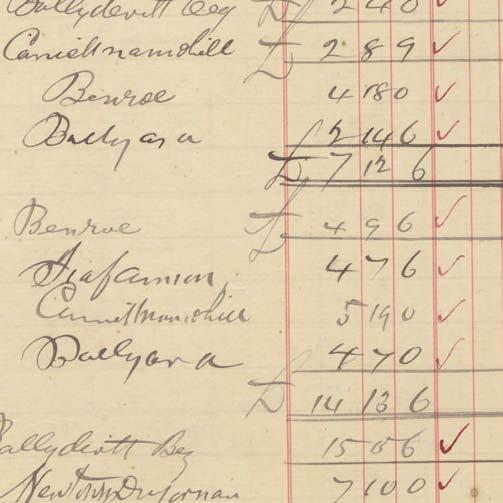 Ballydevitt Beg £ 2 4 0 ✓
Carricknamohill £ 2 8 9 ✓
Benroe 4 18 0 ✓
Ballyara 2 14 6 ✓
£ 7 12 6
Benroe £ 4 9 6 ✓
4 7 6 ✓
Carricknamohill 5 19 0 ✓
Ballyara 4 7 0 ✓
£ 14 13 6
Ballydevitt Beg 15 0 6 ✓
Newtown 7 10 0 ✓